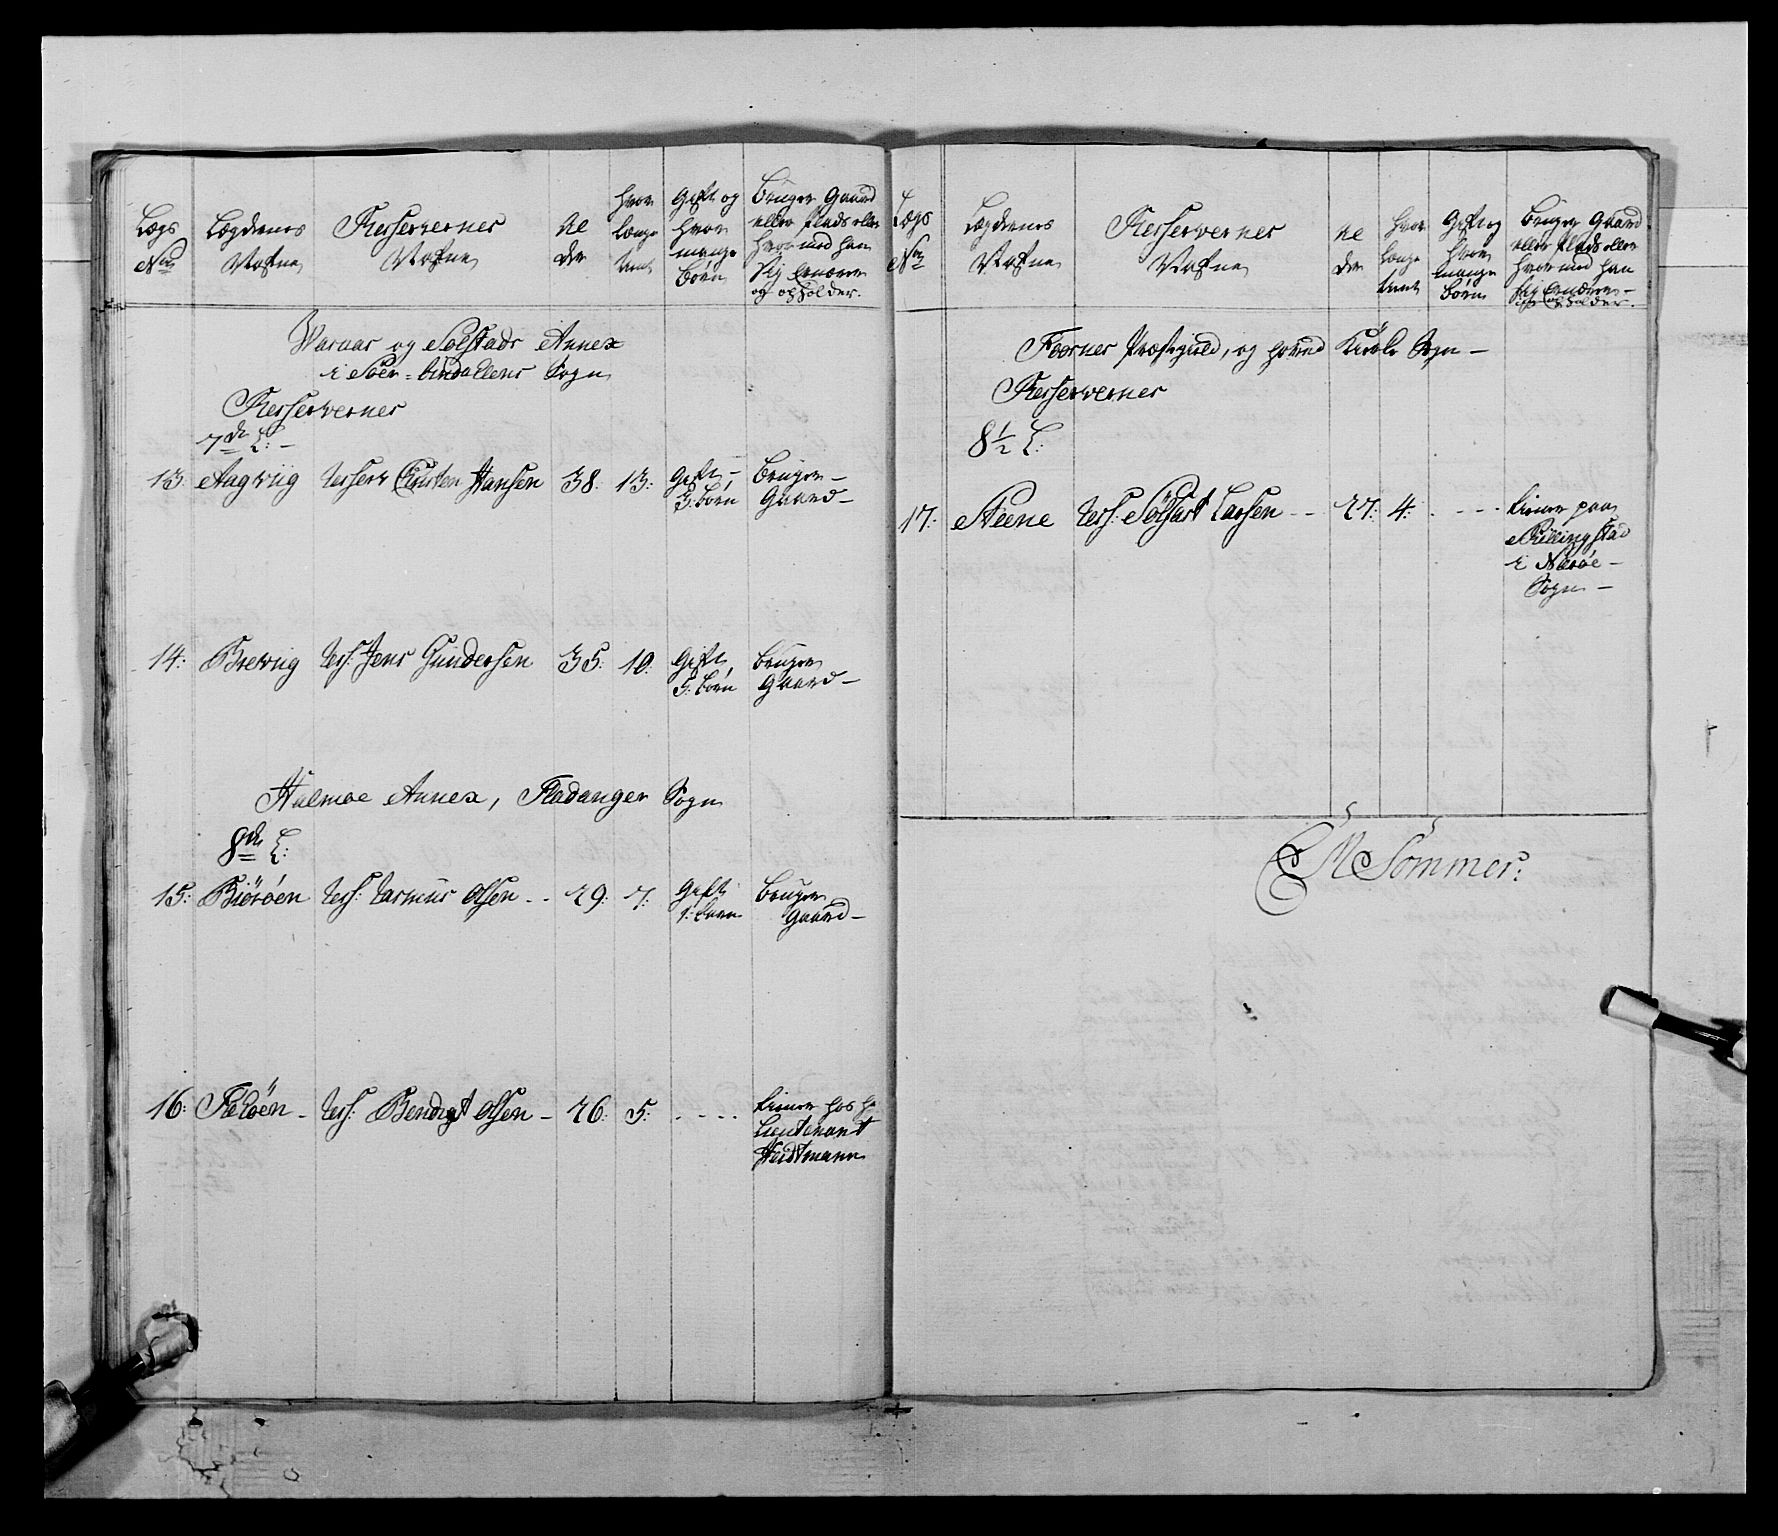 Lægs
Nrs
Lægdernes
Nafne
Resserwernes
Nafne
Al
der
hvor
længe
tient
Gift og
hvor
mange
børn
Bruger Gaard
eller Plads eller
hvormed han
sig Ernærer
og opholder.
Waraas og Sølstads Annex
i Soer-Aurdallens Sogn
Resserwernes
7de L:
13: Aagwiig Ressery Christen Hansen 38: 13: Gift, Bruger
3: børn Gaard
14: Brewiig Ress: Jens Gundersen 35: 10: Gift, Bruger
3: børn Gaard
Halmøe Annex, Fladanger Sogn
8de L:
15: Biörøen Ress: Rasmus Olsen 29: 7: Gift Bruger
1: barn Gaard
16: Ress: Bendigt Olsen 26: 5: tiener hos hr
Lieutenant
Heidtmann
Lægs
Nrs
Lægdernes
Nafne
Resserwernes
Nafne
Al
der
hvor
længe
tient
Gift og
hvor
mange
børn
Bruger Gaard
eller Plads eller
hvormed han
sig Ernærer
og opholder.
Foesnes Præstegield, og hoved Kirke Sogn
Resserwernes
8½ L:
17: Steene Ress: Larsen 27: 4: tiener paa
i Nærøe
Sogn
M Sommer: